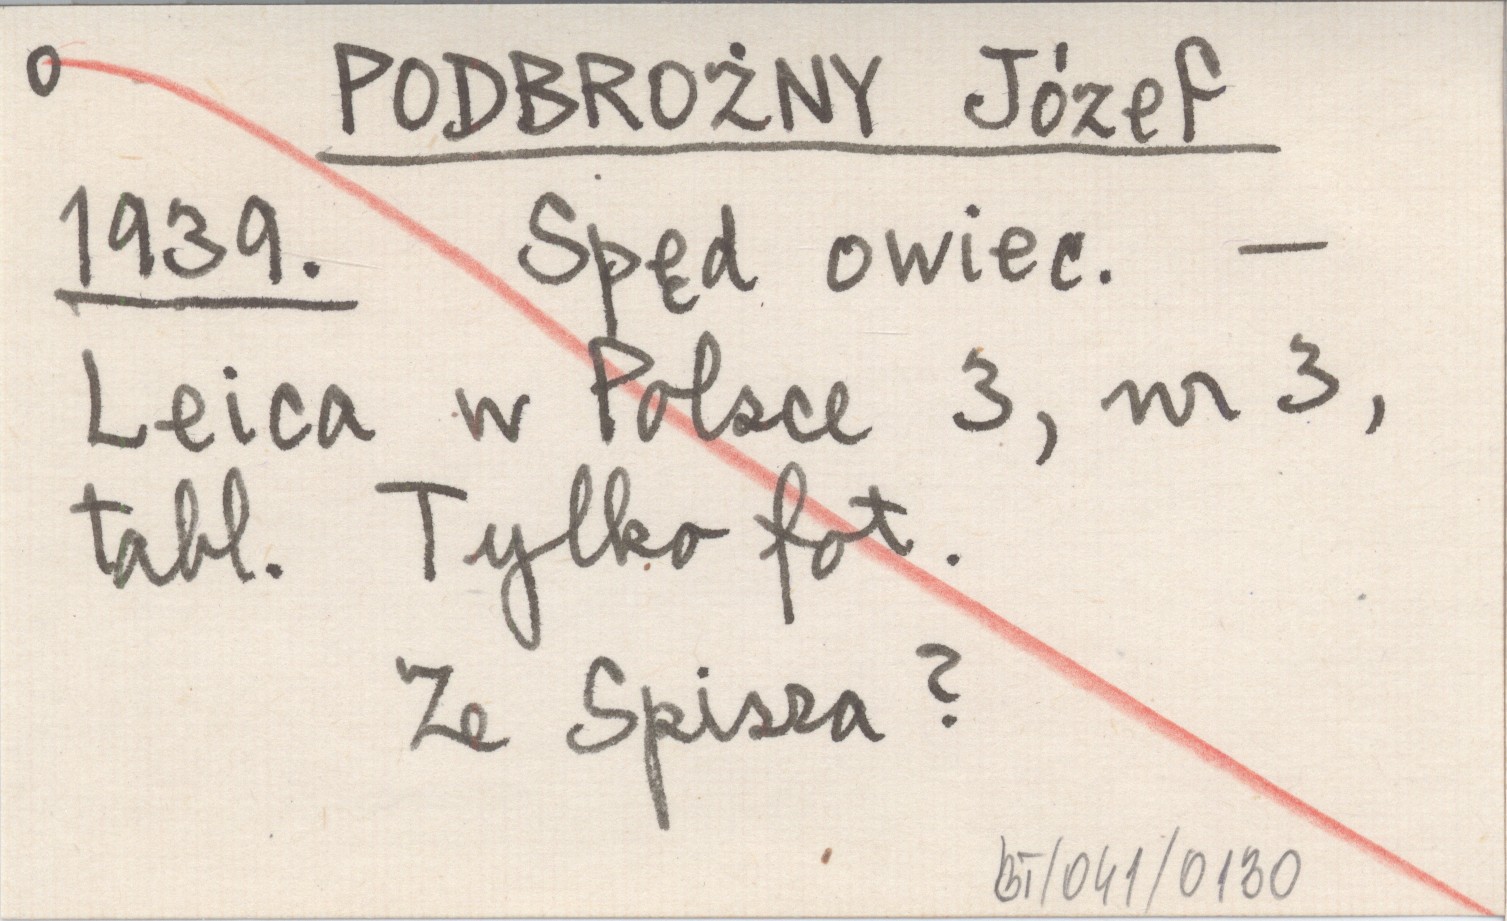 O PODBROŻNY Józef
1939. Spęd owiec. —
Leica w Polsce 3, nr 3,
tabl. Tylko fot.
Ze Spisza?
BT/041/0130